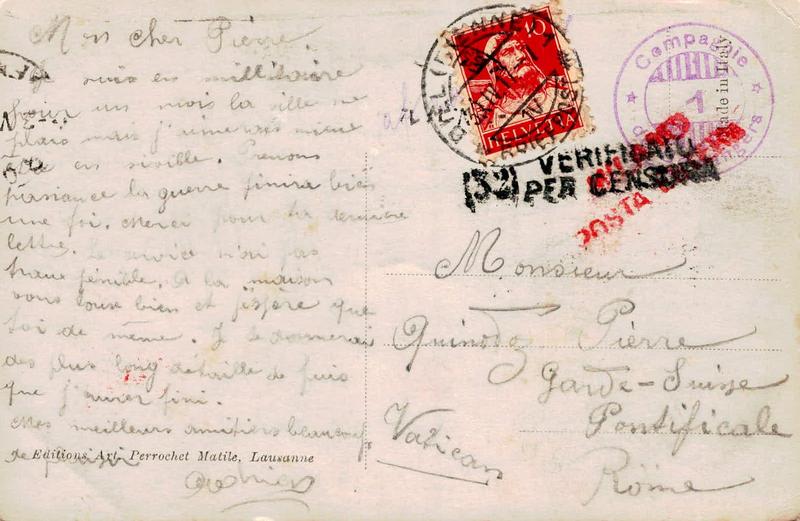 Mon cher Pierre.
Je suis en millitaire
pour un mois la ville me
plais mais j'aimerais mieux
être en siville. Prenons
pasiance la guerre finira bien
une foi. Merci pour ta dernière
lettre. Le service n'ai pas
traux pénible. A la maison
vons tous bien et j'espère que
toi de même. Je te donnerai
des plus long détaille de puis
que j'aurer fini.
Mes meilleurs amitiers beaucoup
de
Editions Art. Perrochet Matile, Lausanne
10
HELVETIA
Compagnie
1
Made in Italy
(32) VERIFICATO
PER CENSURA
POSTA
Monsieur
Quinodoz Pierre
Garde-Suisse
Pontificale
Vatican
Röme